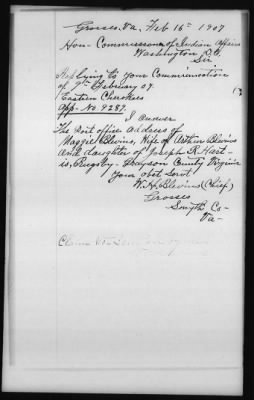 Grosses, Va, Feb 16th 1907
Hon- Commissioner of Indian Affairs
Washington D.C.
Sir
Replying to your Communication
of 9th February 07.
Eastern Cherokees
App- No 9287.
I answer
The Post office address of
Maggie Blevins, Wife of Arthur Blevins
and daughter of Joseph R. Hart-
is, Rugby - Grayson County Virginia
your obst Servt
W. H. Blevins (Chief)
Grosses
Smyth Co-
Va-